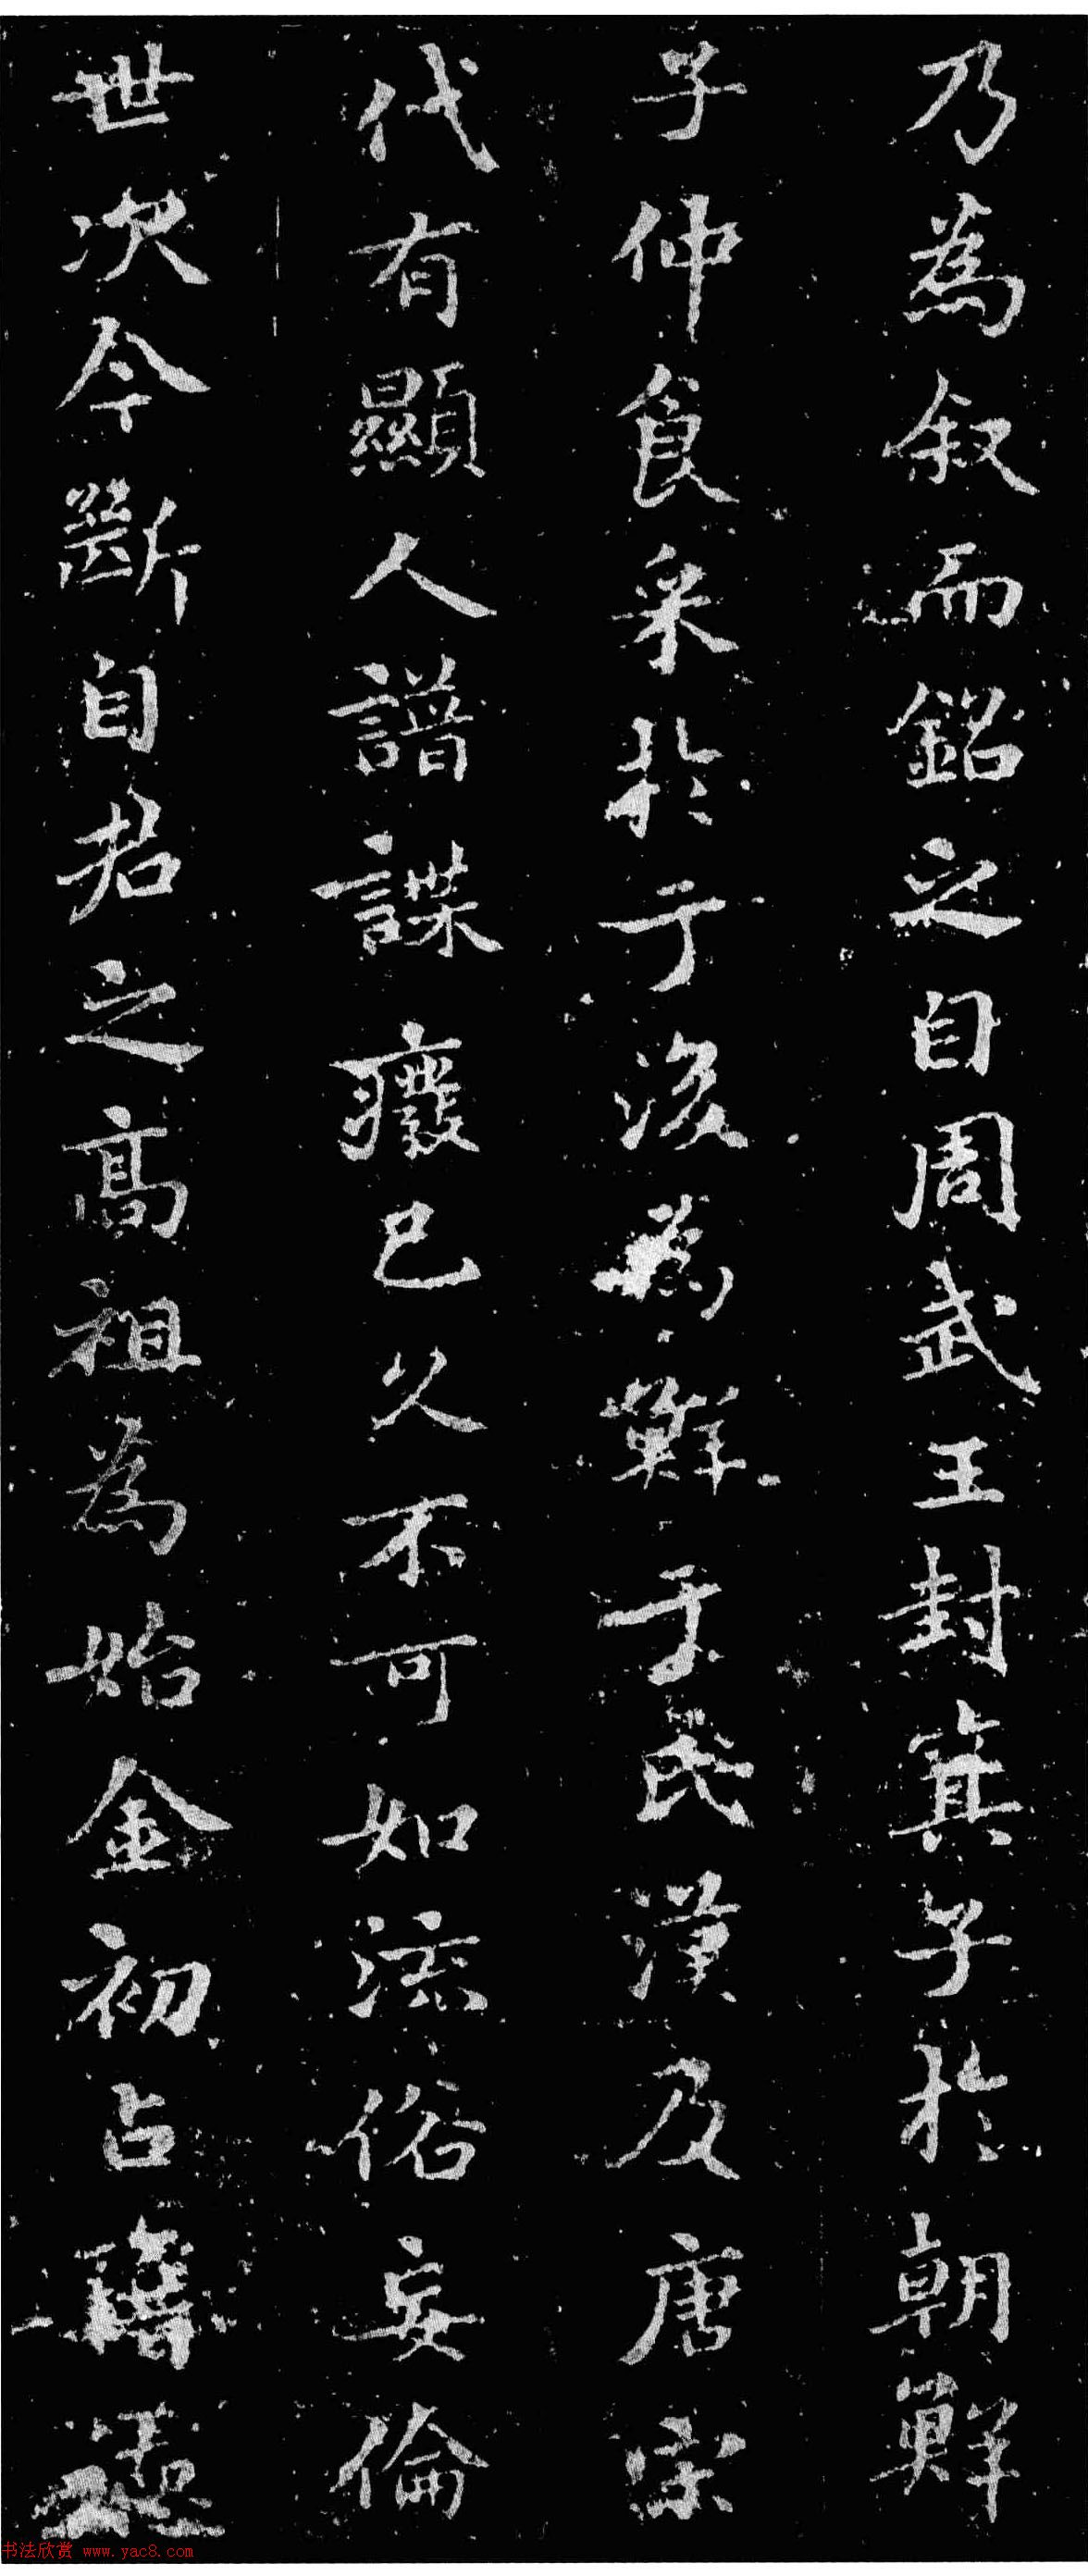 乃為叙而銘之自周武王封箕子於朝鮮
子仲食采於于後為鮮于氏漢及唐宋
代有顯人譜諜癈已久不可如流俗妄倫
世次今斷自君之高祖為始金初占籍
书法欣赏 www.yac8.com